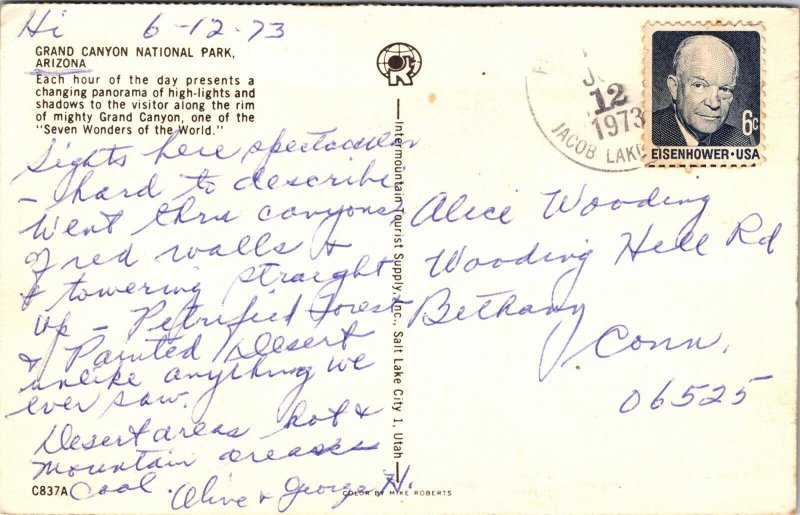 Hi 6-12-73
GRAND CANYON NATIONAL PARK,
ARIZONA
Each hour of the day presents a
changing panorama of high-lights and
shadows to the visitor along the rim
of mighty Grand Canyon, one of the
"Seven Wonders of the World."
Sights here spectacular
- hard to describe
Went thru canyons
of red walls &
& towering straight
up - Petrified Forest
& Painted Desert
unlike anything we
ever saw.
Desert areas hot &
mountain areas
Cool.
Olive & George H.
C837A
COLOR BY MIKE ROBERTS
Intermountain Tourist Supply, Inc., Salt Lake City 1, Utah
R
12
1973
JACOB LAKE
6c
EISENHOWER·USA
Alice Wooding
Wooding Hill Rd
Bethany
Conn.
06525